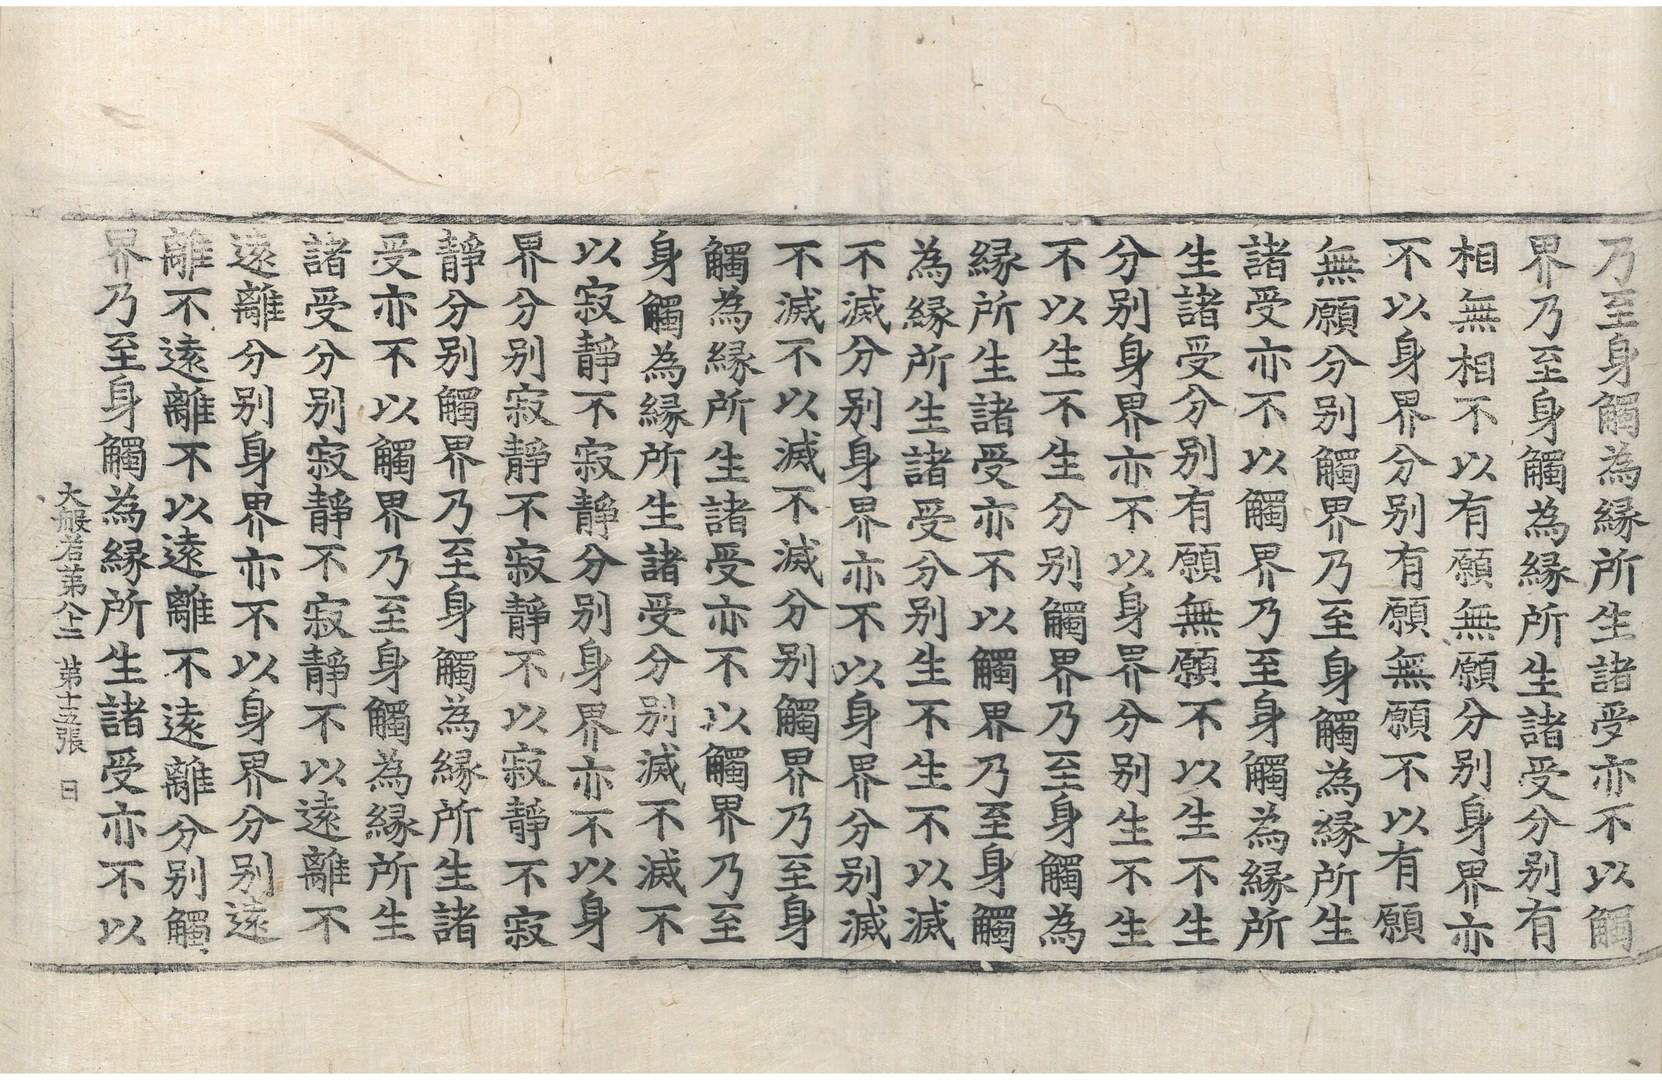 乃至身觸為縁所生諸受亦不以觸
界乃至身觸為縁所生諸受分别有
相無相不以有願無願分别身界亦
不以身界分别有願無願不以有願
無願分别觸界乃至身觸為縁所生
諸受亦不以觸界乃至身觸為縁所
生諸受分别有願無願不以生不生
分别身界亦不以身界分别生不生
不以生不生分别觸界乃至身觸為
縁所生諸受亦不以觸界乃至身觸
為縁所生諸受分别生不生不以滅
不滅分别身界亦不以身界分别滅
不滅不以滅不滅分别觸界乃至身
觸為縁所生諸受亦不以觸界乃至
身觸為縁所生諸受分别滅不滅不
以寂靜不寂靜分别身界亦不以身
界分别寂靜不寂靜不以寂靜不寂
靜分别觸界乃至身觸為縁所生諸
受亦不以觸界乃至身觸為縁所生
諸受分别寂靜不寂靜不以遠離不
遠離分别身界亦不以身界分别遠
離不遠離不以遠離不遠離分别觸
界乃至身觸為縁所生諸受亦不以
大般若第八十二 第十五張 日